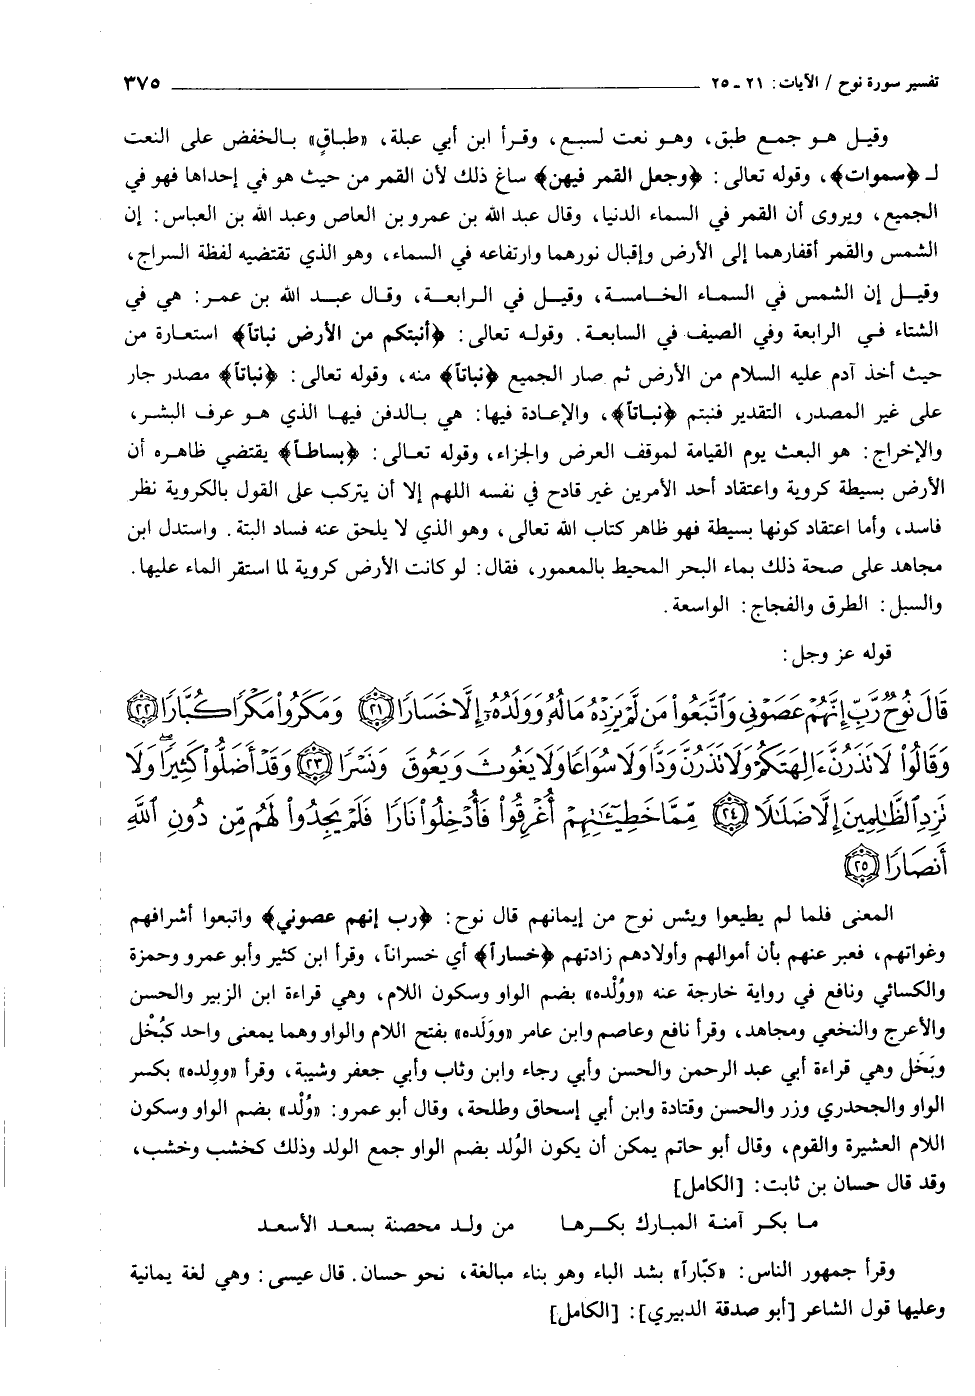 تفسير سورة نوح / الآيات: ٢١ ـ ٢٥ ٣٧٥
وقيل هو جمع طبق، وهو نعت لسبع، وقرأ ابن أبي عبلة، «طباقٍ» بالخفض على النعت
لـ ﴿سموات﴾، وقوله تعالى: ﴿وجعل القمر فيهن﴾ ساغ ذلك لأن القمر من حيث هو في إحداها فهو في
الجميع، ويروى أن القمر في السماء الدنيا، وقال عبد الله بن عمرو بن العاص وعبد الله بن العباس: إن
الشمس والقمر أقفارهما إلى الأرض وإقبال نورهما وارتفاعه في السماء، وهو الذي تقتضيه لفظة السراج،
وقيل إن الشمس في السماء الخامسة، وقيل في الرابعة، وقال عبد الله بن عمر: هي في
الشتاء في الرابعة وفي الصيف في السابعة. وقوله تعالى: ﴿أنبتكم من الأرض نباتاً﴾ استعارة من
حيث أخذ آدم عليه السلام من الأرض ثم صار الجميع ﴿نباتاً﴾ منه، وقوله تعالى: ﴿نباتاً﴾ مصدر جار
على غير المصدر، التقدير فنبتم ﴿نباتاً﴾، والإعادة فيها: هي بالدفن فيها الذي هو عرف البشر،
والإخراج: هو البعث يوم القيامة لموقف العرض والجزاء، وقوله تعالى: ﴿بساطاً﴾ يقتضي ظاهره أن
الأرض بسيطة كروية واعتقاد أحد الأمرين غير قادح في نفسه اللهم إلا أن يتركب على القول بالكروية نظر
فاسد، وأما اعتقاد كونها بسيطة فهو ظاهر كتاب الله تعالى، وهو الذي لا يلحق عنه فساد البتة. واستدل ابن
مجاهد على صحة ذلك بماء البحر المحيط بالمعمور، فقال: لو كانت الأرض كروية لما استقر الماء عليها.
والسبل: الطرق والفجاج: الواسعة.
قوله عز وجل:
قَالَ نُوحٌ رَّبِّ إِنَّهُمْ عَصَوْنِى وَٱتَّبَعُوا۟ مَن لَّمْ يَزِدْهُ مَالُهُۥ وَوَلَدُهُۥٓ إِلَّا خَسَارًا ۝٢١ وَمَكَرُوا۟ مَكْرًا كُبَّارًا ۝٢٢
وَقَالُوا۟ لَا تَذَرُنَّ ءَالِهَتَكُمْ وَلَا تَذَرُنَّ وَدًّا وَلَا سُوَاعًا وَلَا يَغُوثَ وَيَعُوقَ وَنَسْرًا ۝٢٣ وَقَدْ أَضَلُّوا۟ كَثِيرًا ۖ وَلَا
تَزِدِ ٱلظَّـٰلِمِينَ إِلَّا ضَلَـٰلًا ۝٢٤ مِّمَّا خَطِيٓـَٔـٰتِهِمْ أُغْرِقُوا۟ فَأُدْخِلُوا۟ نَارًا فَلَمْ يَجِدُوا۟ لَهُم مِّن دُونِ ٱللَّهِ
أَنصَارًا ۝٢٥
المعنى فلما لم يطيعوا ويئس نوح من إيمانهم قال نوح: ﴿رب إنهم عصوني﴾ واتبعوا أشرافهم
وغواتهم، فعبر عنهم بأن أموالهم وأولادهم زادتهم ﴿خساراً﴾ أي خسراناً، وقرأ ابن كثير وأبو عمرو وحمزة
والكسائي ونافع في رواية خارجة عنه «ووُلْده» بضم الواو وسكون اللام، وهي قراءة ابن الزبير والحسن
والأعرج والنخعي ومجاهد، وقرأ نافع وعاصم وابن عامر «ووَلَده» بفتح اللام والواو وهما بمعنى واحد كبُخْل
وبَخَل وهي قراءة أبي عبد الرحمن والحسن وأبي رجاء وابن وثاب وأبي جعفر وشيبة، وقرأ «ووِلده» بكسر
الواو والجحدري وزر والحسن وقتادة وابن أبي إسحاق وطلحة، وقال أبو عمرو: «وُلْد» بضم الواو وسكون
اللام العشيرة والقوم، وقال أبو حاتم يمكن أن يكون الوُلد بضم الواو جمع الولد وذلك كخشب وخشب،
وقد قال حسان بن ثابت: [الكامل]
ما بكر آمنة المبارك بكرها من ولد محصنة بسعد الأسعد
وقرأ جمهور الناس: «كبّاراً» بشد الباء وهو بناء مبالغة، نحو حسان. قال عيسى: وهي لغة يمانية
وعليها قول الشاعر [أبو صدقة الدبيري]: [الكامل]